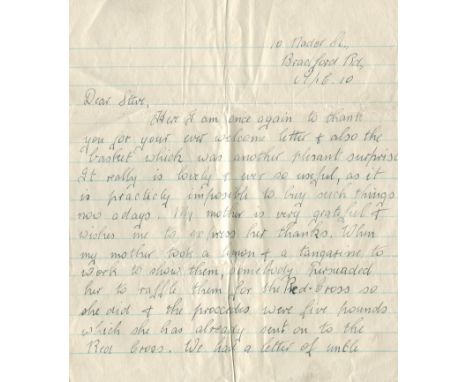 10 Nador St.,
Bradford Rd,
M/C. 10
Dear Steve,
Here I am once again to thank
you for your ever welcome letter & also the
basket which was another plesant surprise.
It really is lovely & ever so useful, as it
is practicly impossible to buy such things
now adays. My mother is very grateful &
wishes me to express her thanks. When
my mother took a lemon & a tangarine to
work to show them, somebody persuaded
her to raffle them for the Red-Cross so
she did & the procedes were five pounds
which she has already sent on to the
Red Cross. We had a letter of uncle